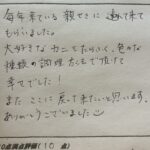 毎年来ている親せきに連れて来て
もらいました。
大好きなカニをたらふく、色々な
種類の調理方法で頂けて
幸せでした!
また ここに戻って来たいと思います。
ありがとうございました
(10 点)